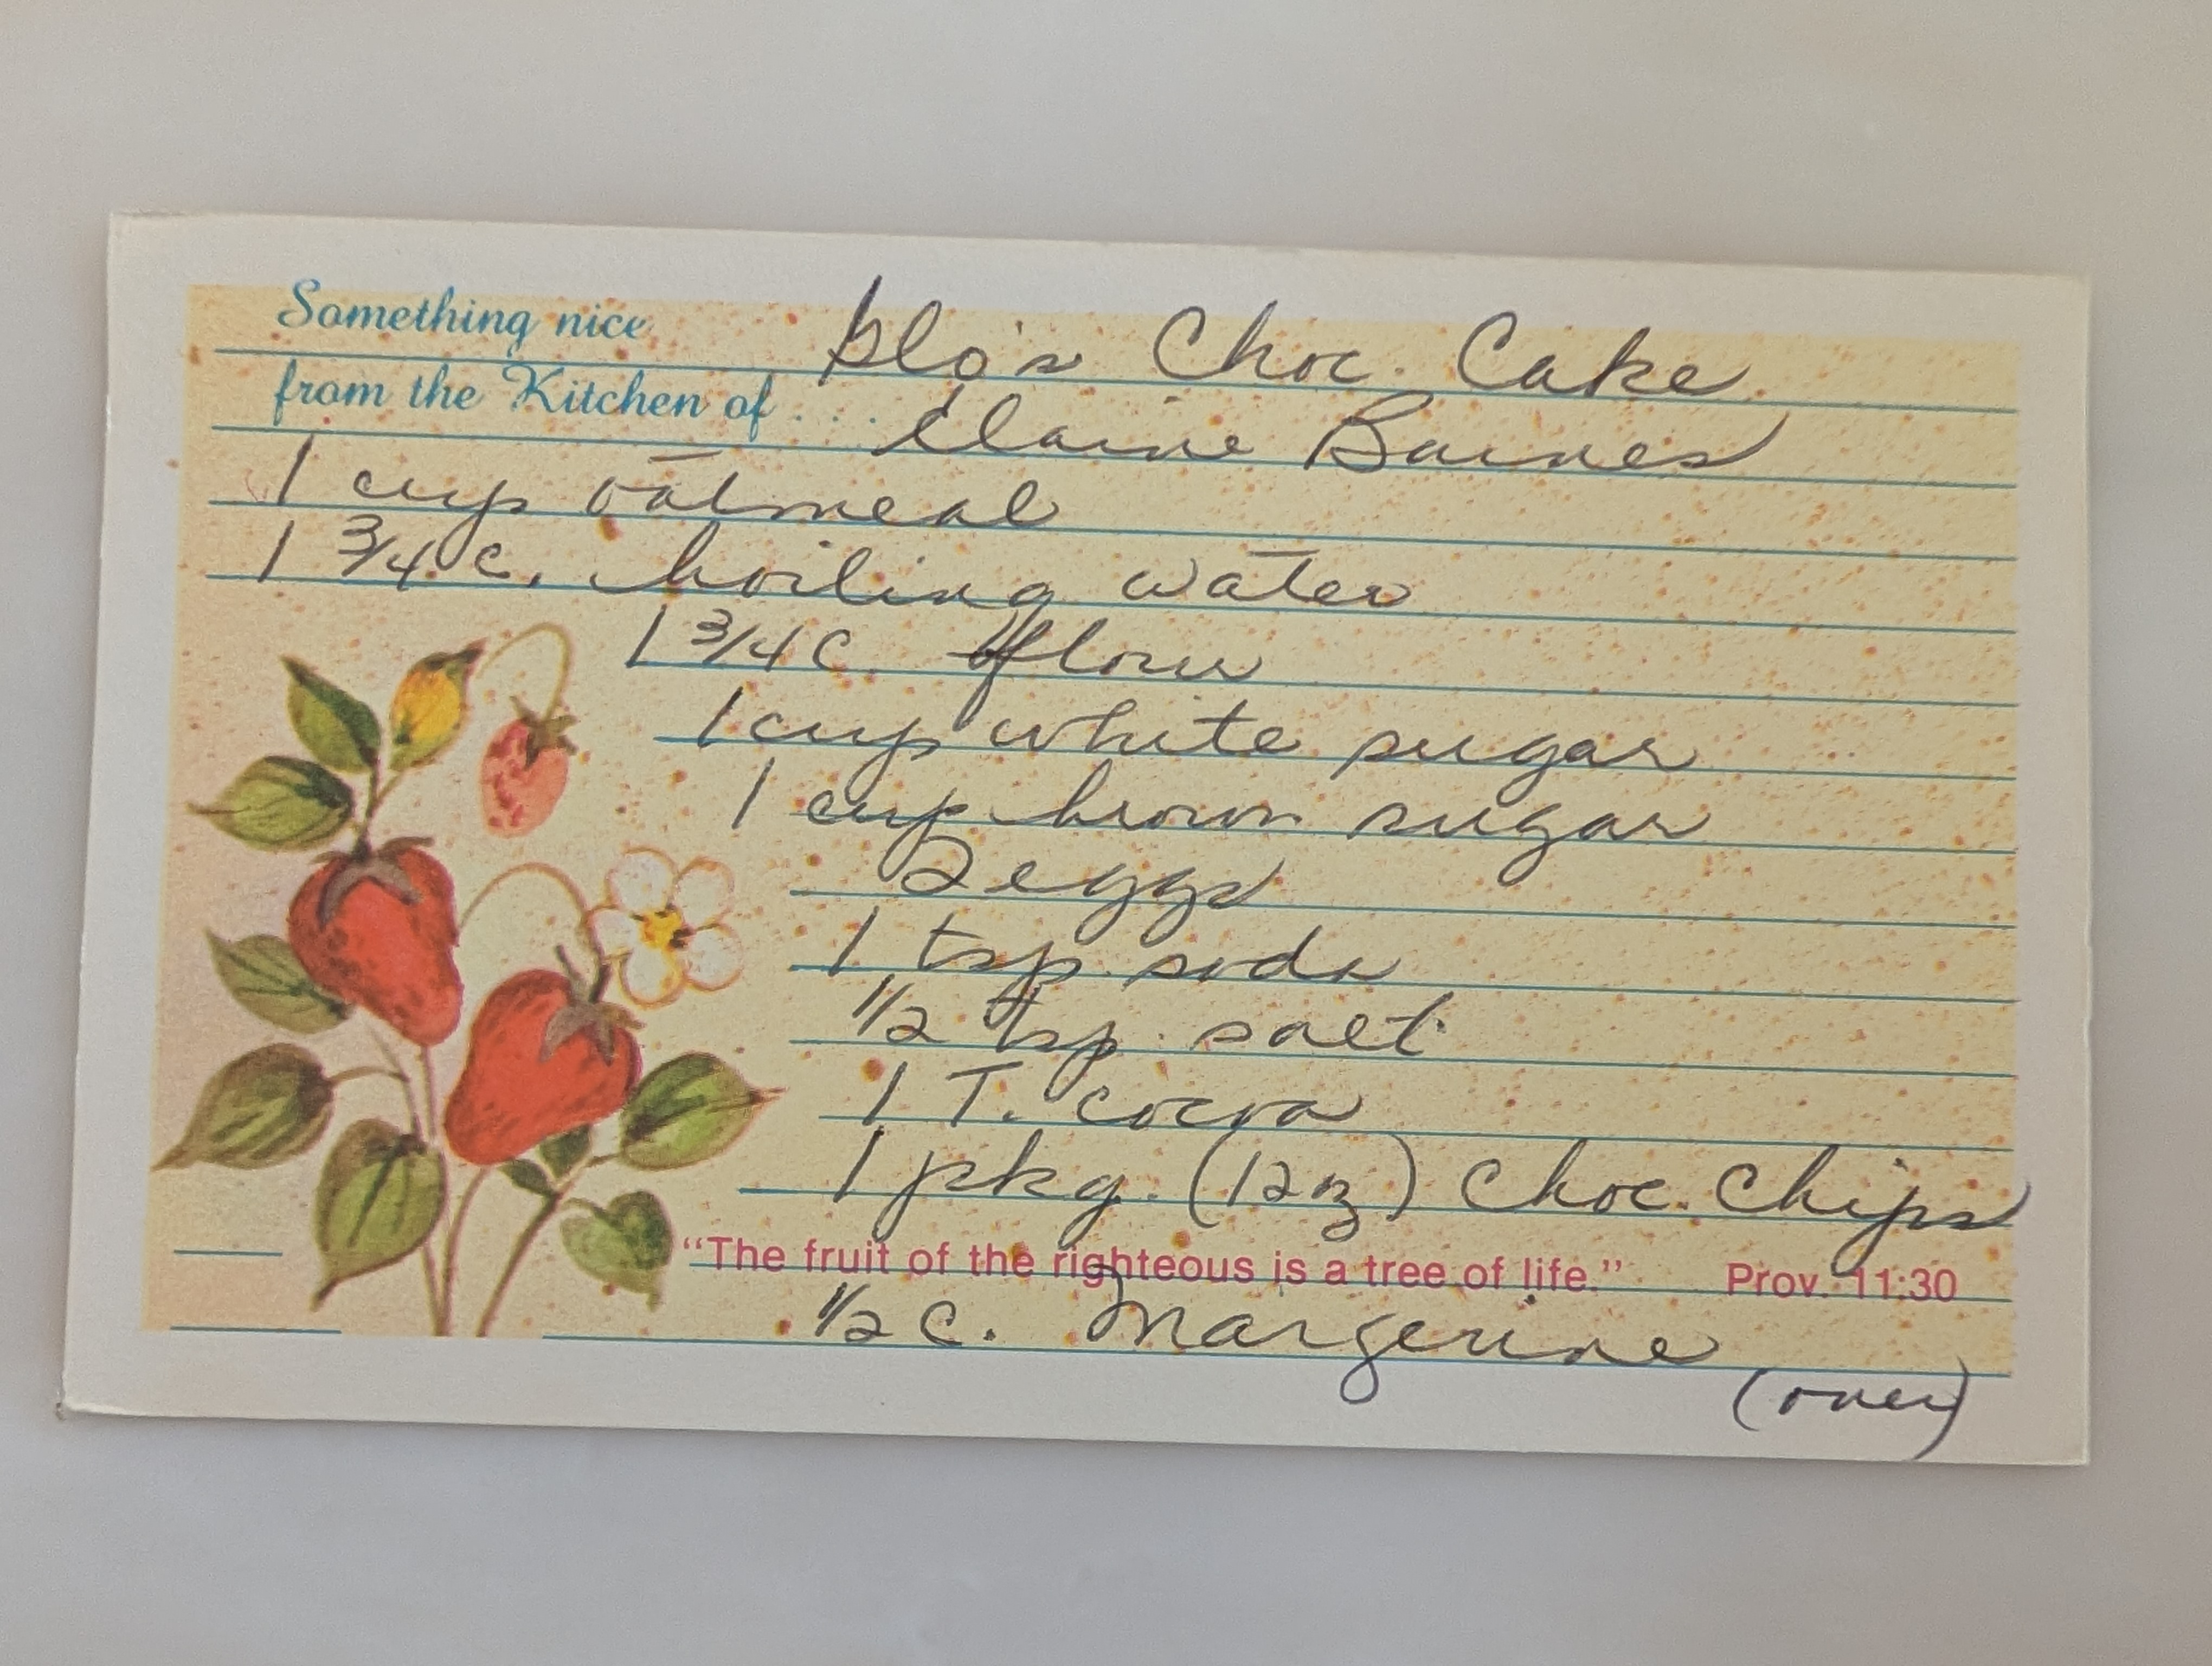 Something nice
from the Kitchen of . . . .
Flo's Choc. Cake
Elaine Barnes
1 cup oatmeal
1 3/4 c. boiling water
1 3/4 c. flour
1 cup white sugar
1 cup brown sugar
2 eggs
1 tsp. soda
1/2 tsp. salt
1 T. cocoa
1 pkg. (12 oz) Choc. Chips
“The fruit of the righteous is a tree of life.” Prov. 11:30
1/2 c. Margerine
(over)